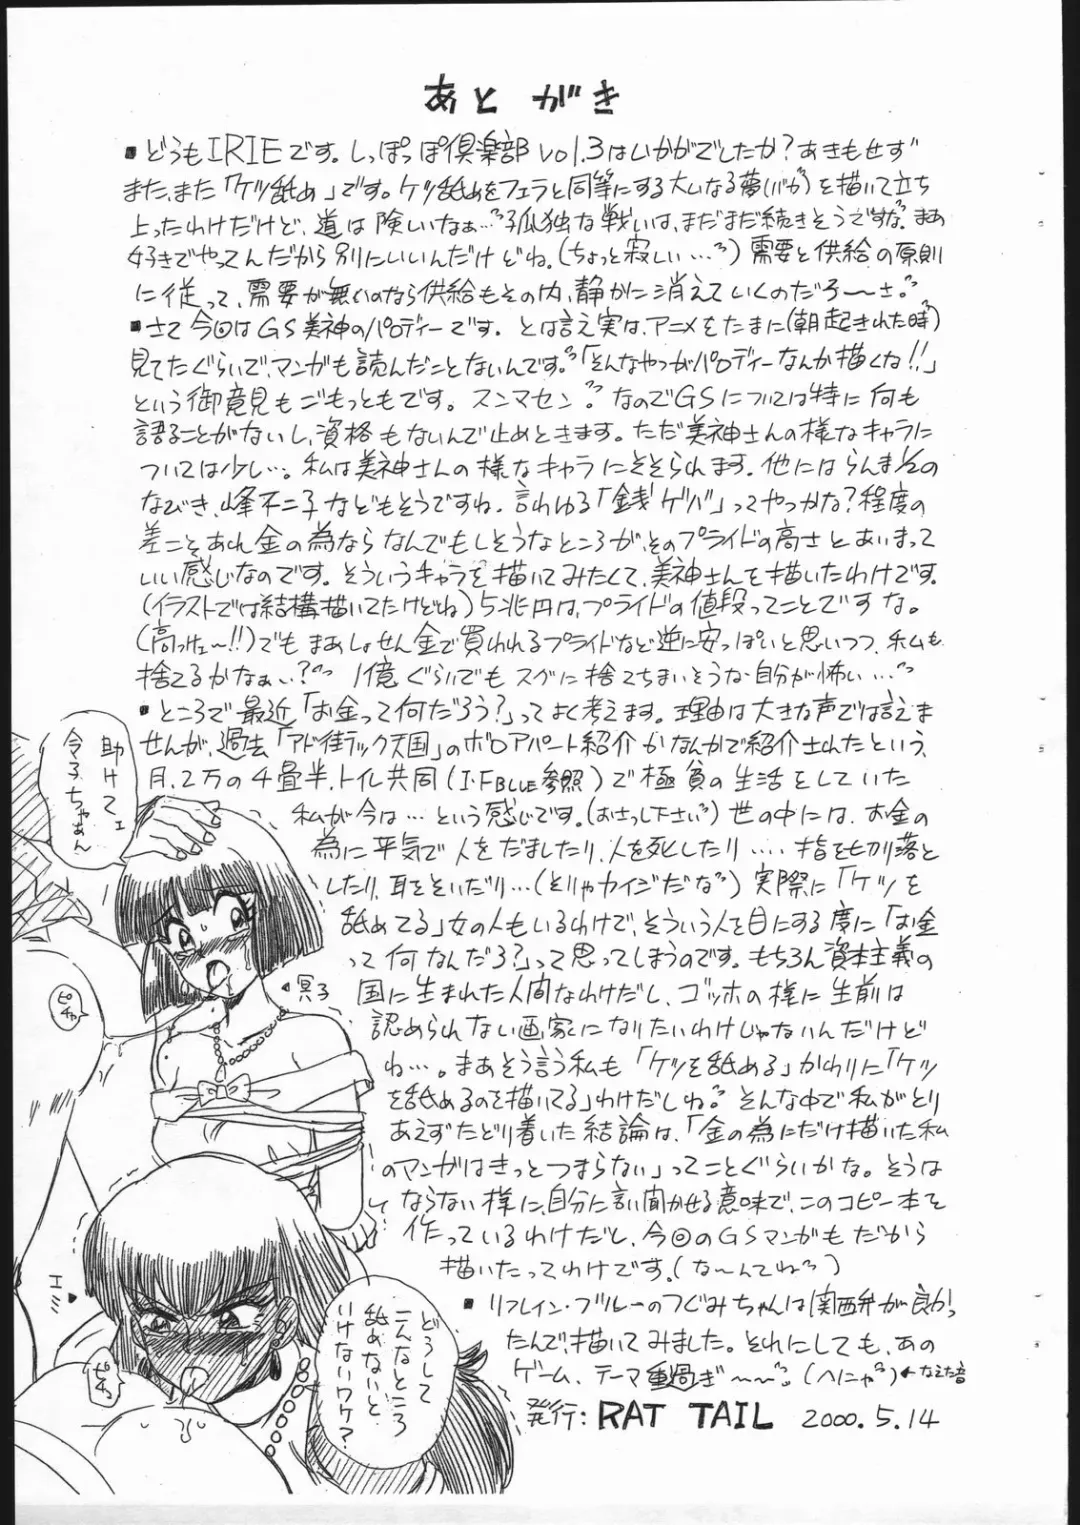 あとがき
■どうもIRIEです。しっぽっぽ倶楽部vol.3はいかがでしたか？あきもせず
また、また「ケツ舐め」です。ケツ舐めをフェラと同等にする大いなる夢(バカ)を描いて立ち
上ったわけだけど、道は険しいなぁ…孤独な戦いは、まだまだ続きそうですな。まあ
好きでやってんだから別にいいんだけどね。(ちょっと寂しい…)需要と供給の原則
に従って、需要が無いのなら供給もその内、静かに消えていくのだろーさ。
■さて今回はGS美神のパロディーです。とは言え実は、アニメをたまに(朝起きれた時)
見てたぐらいで、マンガも読んだことないんです。「そんなやつがパロディーなんか描くな!!」
という御意見もごもっともです。スンマセン。なのでGSについては特に何も
語ることがないし、資格もないんで止めときます。ただ美神さんの様なキャラに
ついては少し…。私は美神さんの様なキャラにそそられます。他にはらんま½の
なびき、峰不二子などもそうですね。言わゆる「銭ゲバ」ってやつかな？程度の
差こそあれ金の為ならなんでもしそうなところが、そのプライドの高さとあいまって
いい感じなのです。そういうキャラを描いてみたくて、美神さんを描いたわけです。
(イラストでは結構描いてたけどね)5兆円は、プライドの値段ってことですな。
(高っけェ～!!)でもまあしょせん金で買われるプライドなど逆に安っぽいと思いつつ、私も
捨てるかなぁ…？1億ぐらいでもスグに捨てちまいそうな自分が怖い…。
■ところで最近「お金って何だろう？」ってよく考えます。理由は大きな声では言えま
せんが、過去「アド街ック天国」のボロアパート紹介かなんかで紹介されたという、
月、2万の4畳半、トイレ共同(I・F BLUE参照)で極貧の生活をしていた
私が今は…という感じです。(おさっし下さい)世の中には、お金の
為に平気で人をだましたり、人を死したり…、指を切り落と
したり、耳をそいだり…(そりゃカイジだな)実際に「ケツを
舐めてる」女の人もいるわけで、そういう人を目にする度に「お金
って何なんだろ？」って思ってしまうのです。もちろん資本主義の
国に生まれた人間なわけだし、ゴッホの様に生前は
認められない画家になりたいわけじゃないんだけど
ね…。まあそう言う私も「ケツを舐める」かわりに「ケツ
を舐めるのを描いてる」わけだしね。そんな中で私がとり
あえずたどり着いた結論は、「金の為にだけ描いた私
のマンガはきっとつまらない」ってことぐらいかな。そうは
ならない様に、自分に言い聞かせる意味で、このコピー本を
作っているわけだと、今回のGSマンガもだから
描いたってわけです。(な～んてね)
■リフレイン・ブルーのつぐみちゃんは関西弁が良かっ
たんで、描いてみました。それにしても、あの
ゲーム、テーマ重過ぎ～～。(へにゃ)←なえた音
発行：RAT TAIL 2000.5.14
助けてェ
令子ちゃぁん
冥子
ピチャ
エミ
ピチャ
どうして
こんなところ
舐めないと
いけないワケ？